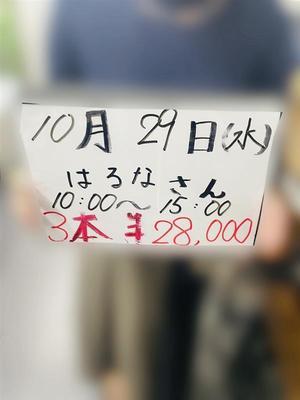 10月 29日(水)
はるなさん
10:00〜15:00
3本 ¥28,000